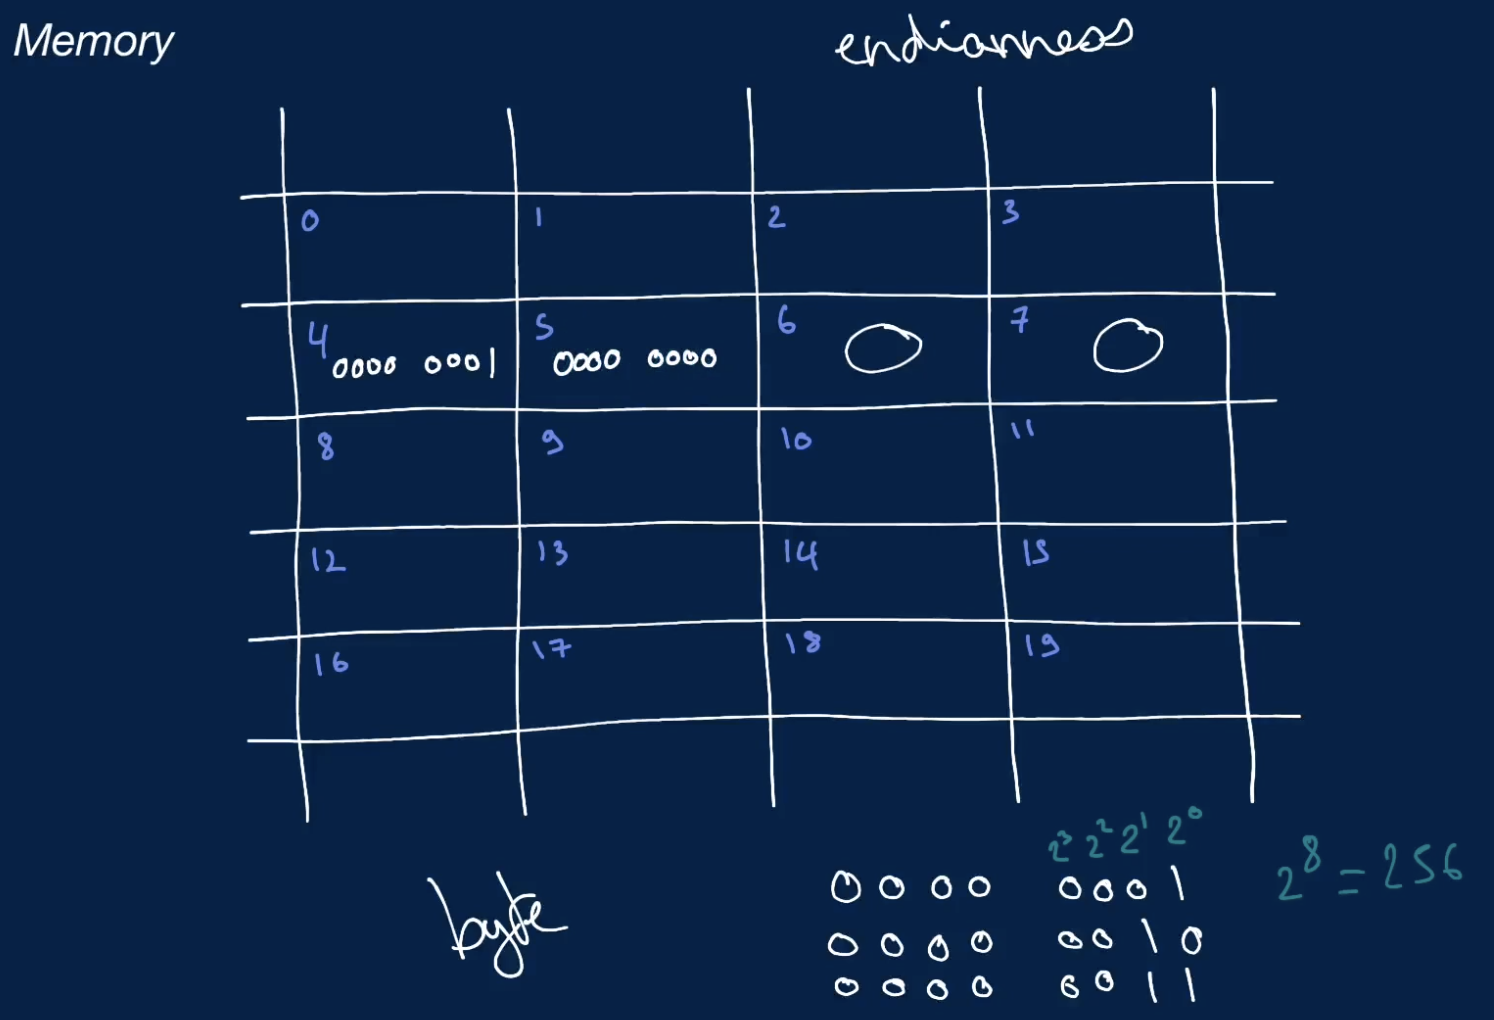 Memory
endianness
0 1 2 3
4 0000 0001 5 0000 0000 6 0 7 0
8 9 10 11
12 13 14 15
16 17 18 19
2³ 2² 2¹ 2⁰
byte
0000 0001 2⁸ = 256
0000 0010
0000 0011